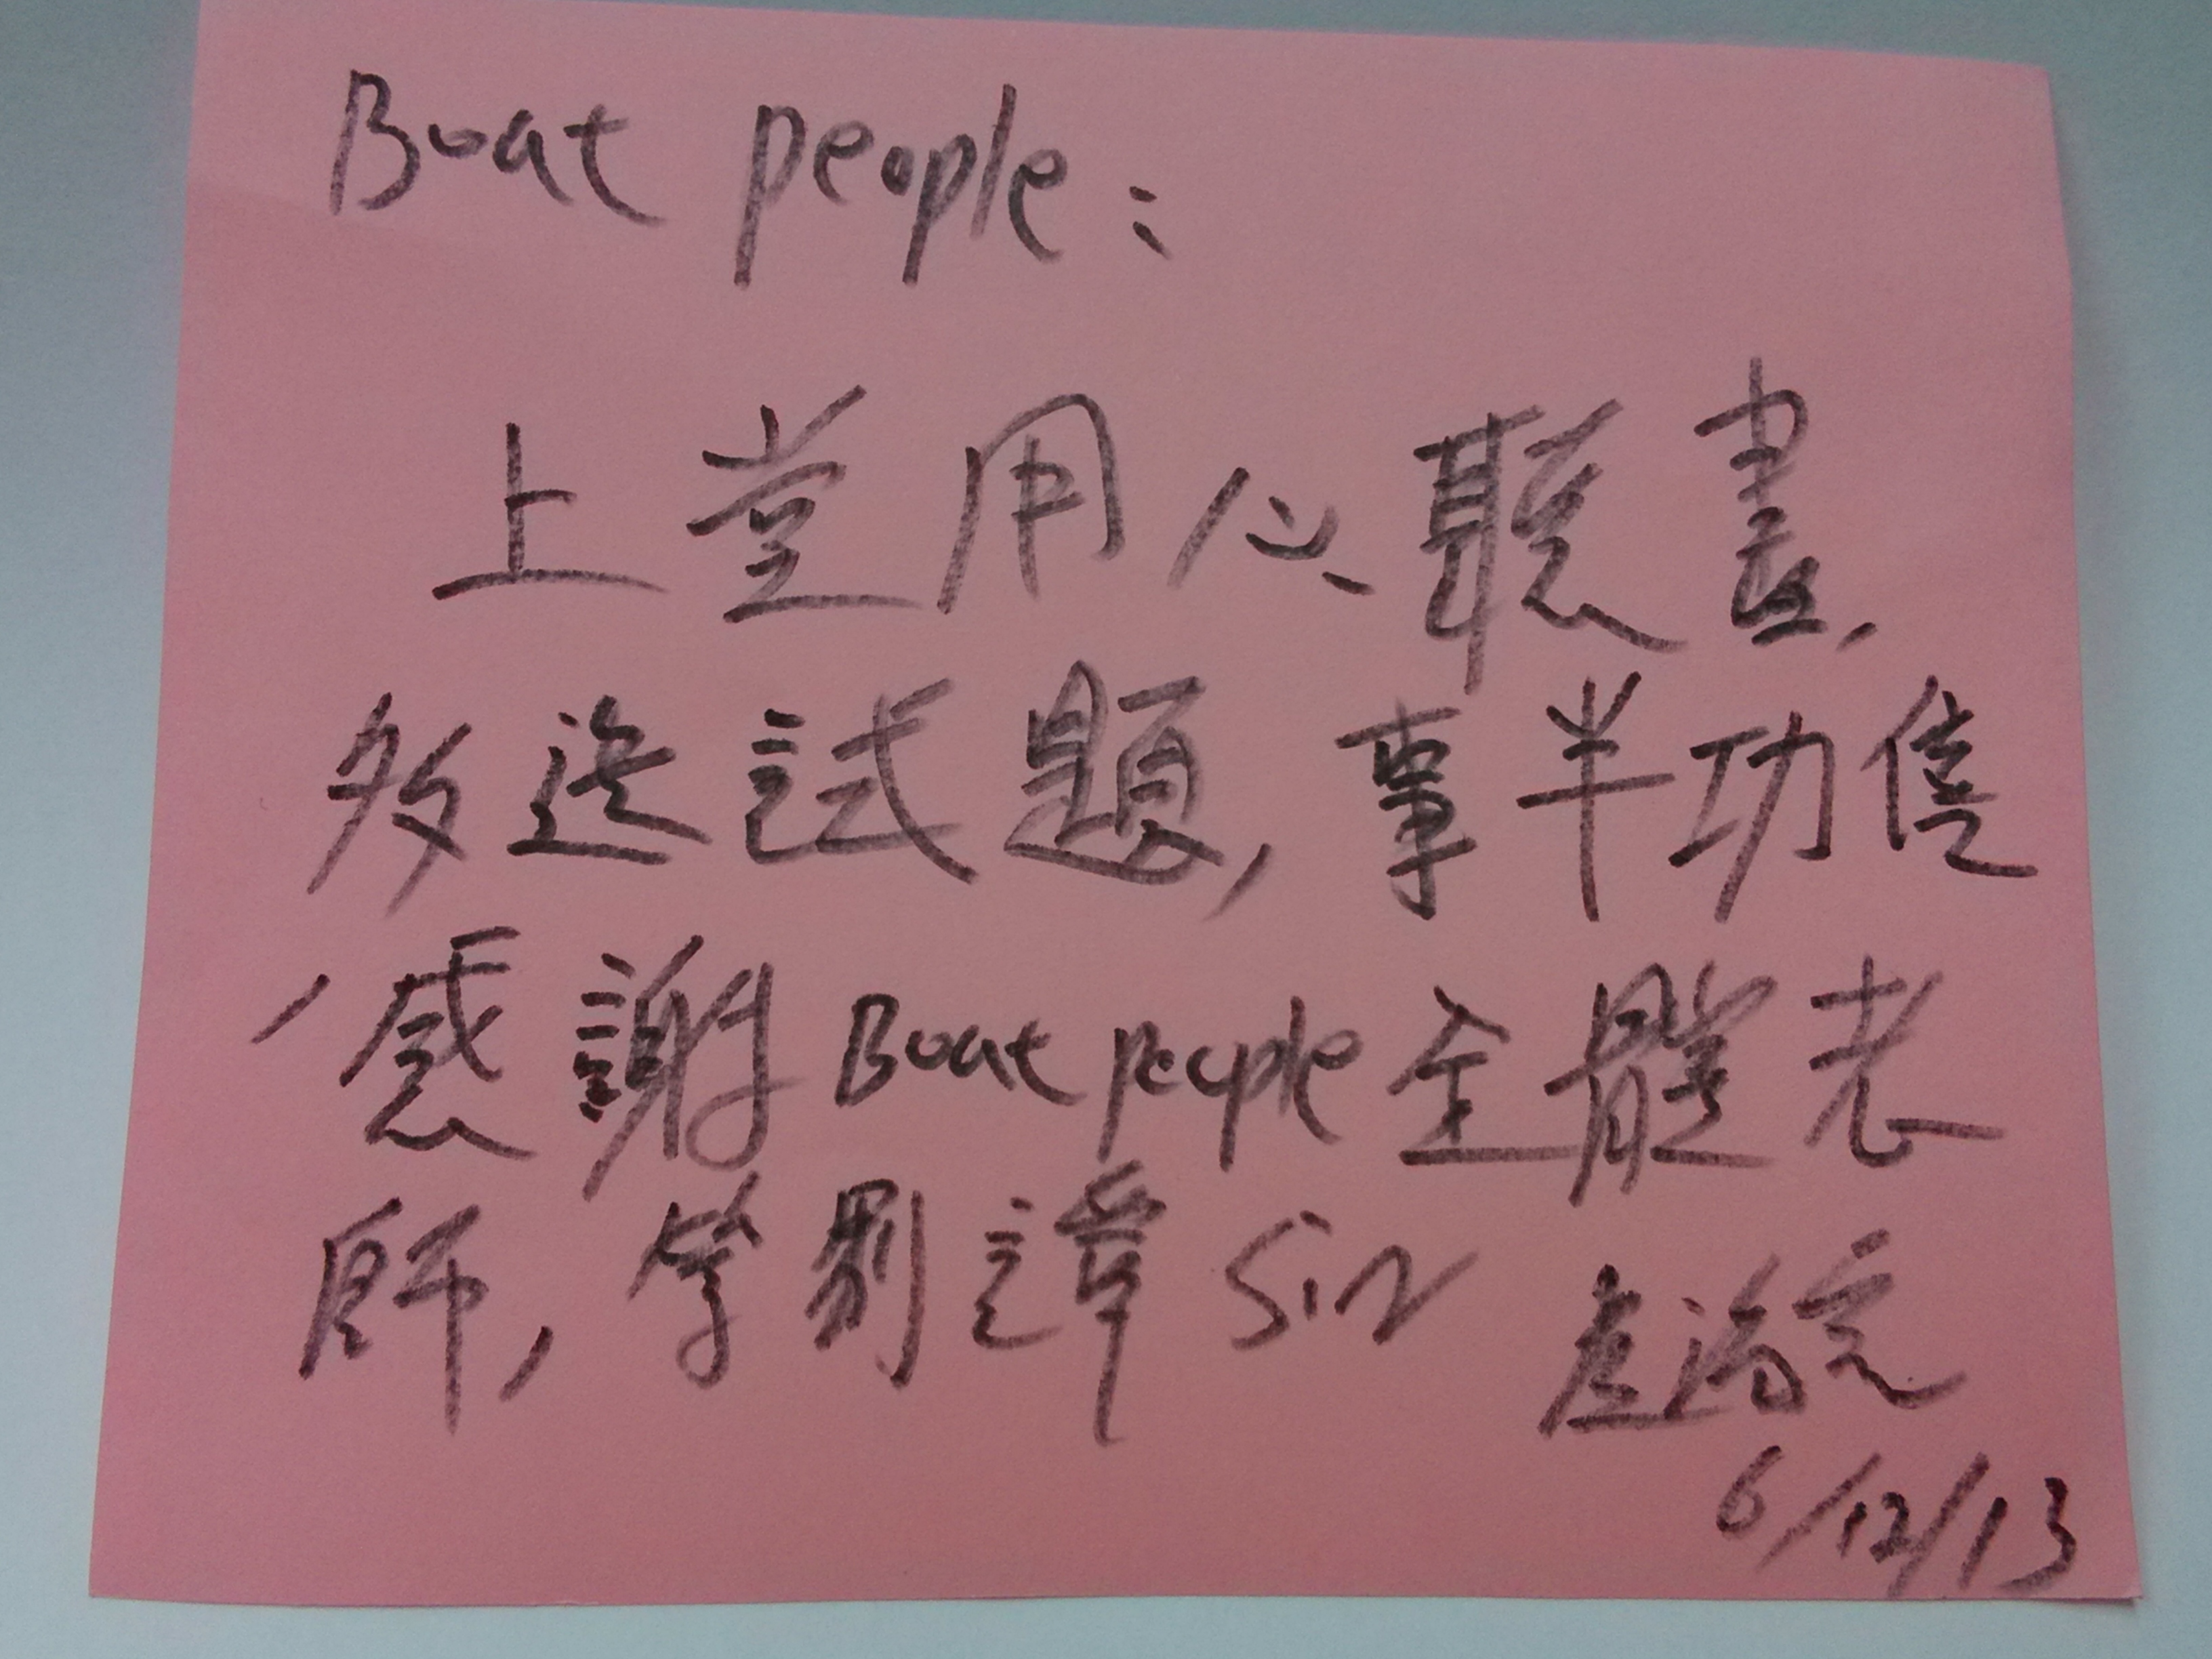 Boat people:
上堂用心聽書,
多操試題,事半功倍
,感謝Boat people全體老
師,特別譚Sir
6/12/13